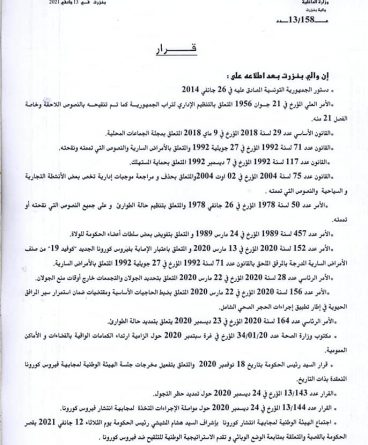 وزارة الداخلية
ولاية بنزرت
بنزرت في 13 جانفي 2021
عـــ13/158ــدد
قـــرار
إن والي بنزرت بعد اطلاعه على :
دستور الجمهورية التونسية المصادق عليه في 26 جانفي 2014
الأمر العلي المؤرخ في 21 جوان 1956 المتعلق بالتنظيم الإداري لتراب الجمهورية كما تم تنقيحه بالنصوص اللاحقة وخاصة
الفصل 21 منه.
القانون الأساسي عدد 29 لسنة 2018 المؤرخ في 9 ماي 2018 المتعلق بمجلة الجماعات المحلية.
القانون عدد 71 لسنة 1992 المؤرخ في 27 جويلية 1992 والمتعلق بالأمراض السارية والنصوص التي تممته ونقحته.
القانون عدد 117 لسنة 1992 المؤرخ في 7 ديسمبر 1992 المتعلق بحماية المستهلك.
القانون عدد 75 لسنة 2004 المؤرخ في 02 أوت 2004 والمتعلق بحذف و مراجعة موجبات إدارية تخص بعض الأنشطة التجارية
و السياحية والنصوص التي تممته .
الأمر عدد 50 لسنة 1978 المؤرخ في 26 جانفي 1978 والمتعلق بتنظيم حالة الطوارئ و على جميع النصوص التي نقحته أو
تممته.
الأمر عدد 457 لسنة 1989 المؤرخ في 24 مارس 1989 و المتعلق بتفويض بعض سلطات أعضاء الحكومة للولاة.
الأمر عدد 152 لسنة 2020 المؤرخ في 13 مارس 2020 و المتعلق باعتبار الإصابة بفيروس كورونا الجديد "كوفيد 19" من صنف
الأمراض السارية المدرجة بالمرفق الملحق بالقانون عدد 71 لسنة 1992 المؤرخ في 27 جويلية 1992 المتعلق بالأمراض السارية.
الأمر الرئاسي عدد 28 لسنة 2020 المؤرخ في 22 مارس 2020 المتعلق بتحديد الجولان والتجمعات خارج أوقات منع الجولان.
الأمر عدد 156 لسنة 2020 المؤرخ في 22 مارس 2020 المتعلق بضبط الحاجيات الأساسية ومقتضيات ضمان استمرار سير المرافق
الحيوية في إطار تطبيق إجراءات الحجر الصحي الشامل.
الأمر الرئاسي عدد 164 لسنة 2020 المؤرخ في 23 ديسمبر 2020 يتعلق بتمديد حالة الطوارئ.
مكتوب وزارة الصحة عدد 34/01/20 المؤرخ في غرة سبتمبر 2020 حول الزامية ارتداء الكمامات الواقية بالفضاءات و الأماكن
العمومية.
قرار السيد رئيس الحكومة بتاريخ 18 نوفمبر 2020 والمتعلق بتفعيل مخرجات جلسة الهيئة الوطنية لمجابهة فيروس كورونا
المنعقدة بذات التاريخ.
القرار عدد 13/143 المؤرخ في 24 ديسمبر 2020 حول تمديد حظر التجول.
القرار عدد 13/144 المؤرخ في 24 ديسمبر 2020 حول مواصلة الإجراءات المتخذة لمجابهة انتشار فيروس كورونا.
اجتماع الهيئة الوطنية لمجابهة انتشار كورونا بإشراف السيد هشام المشيشي رئيس الحكومة يوم الثلاثاء 12 جانفي 2021 بقصر
الحكومة بالقصبة والمتعلقة بمتابعة الوضع الوبائي و تقدم الاستراتيجية الوطنية للتلقيح ضد فيروس كورونا .